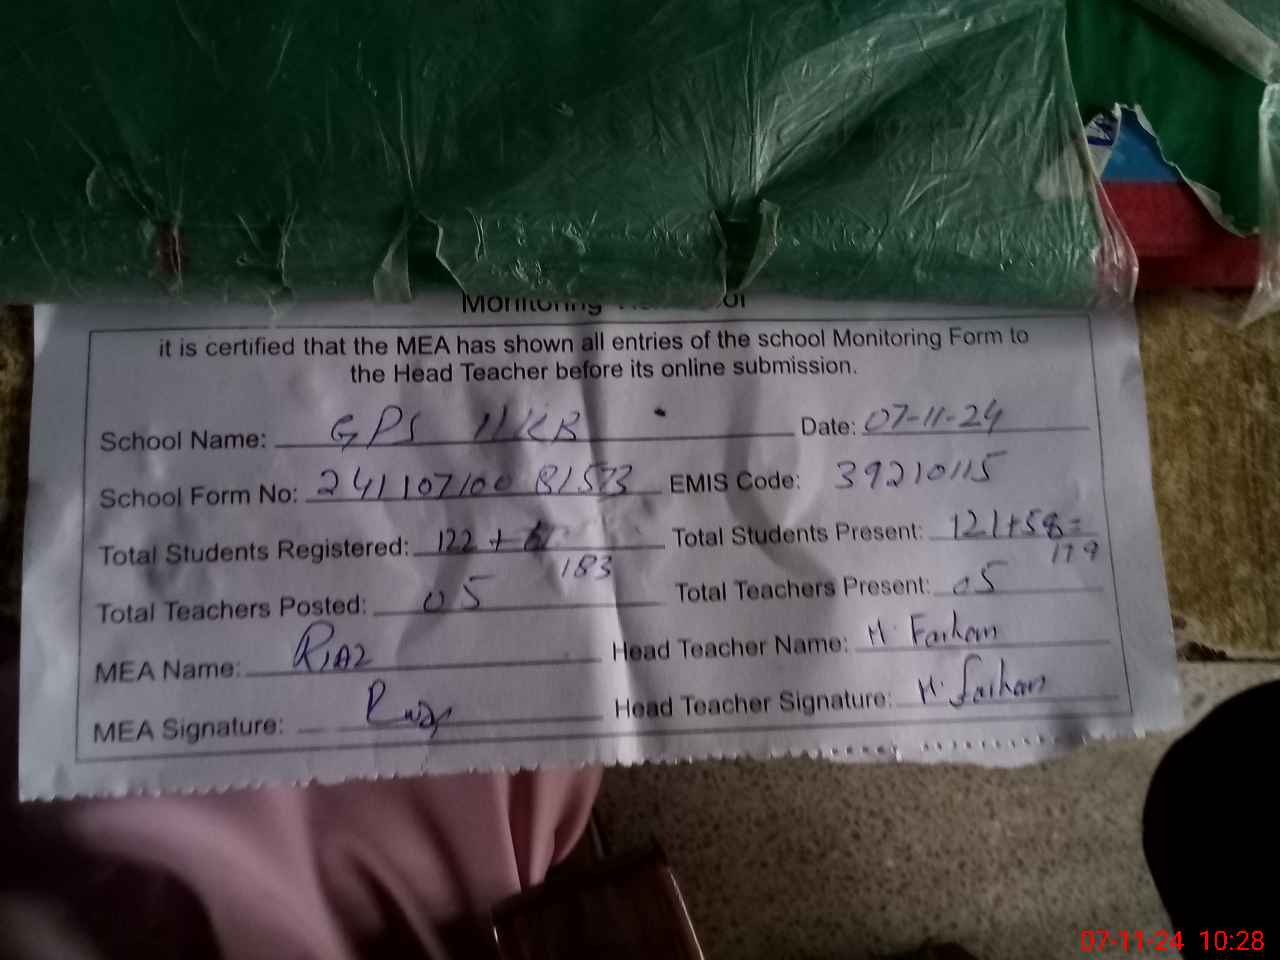 Monitoring
it is certified that the MEA has shown all entries of the school Monitoring Form to
the Head Teacher before its online submission.
School Name: GPS 11/KB Date: 07-11-24
School Form No: 24110710081573 EMIS Code: 39210115
Total Students Registered: 122 + 61 Total Students Present: 121+58=
183 179
Total Teachers Posted: 05 Total Teachers Present: 05
MEA Name: RIAZ Head Teacher Name: M. Farhan
MEA Signature: Riaz Head Teacher Signature: M. Farhan
07-11-24 10:28